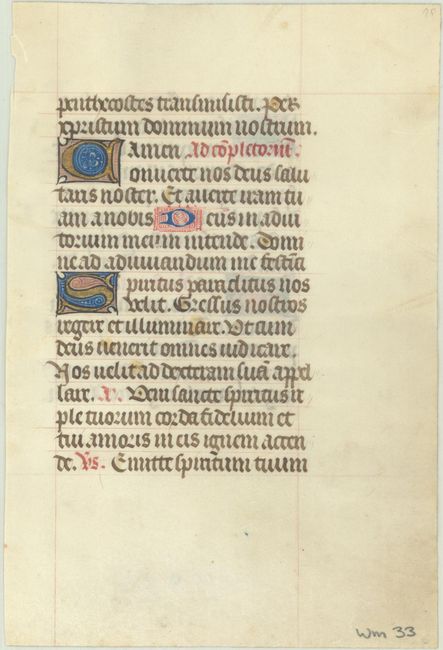 penthecostes transmisisti. Per
xpristum dominum nostrum.
Amen Ad cōpletoriū.
Conuerte nos deus salu
taris noster. Et auerte iram tu
am a nobis Deus in adiu
torium meum intende. Domi
ne ad adiuuandum me festīa
Spiritus paraclitus nos
velit. Gressus nostros
regere et illuminare. Vt cum
deus uenerit omnes iudicare.
Nos uelit ad dexteram suā appel
lare. A. Veni sancte spiritus re
ple tuorum corda fidelium et
tui amoris in eis ignem accen
de. Vs. Emitte spiritum tuum
Wm 33